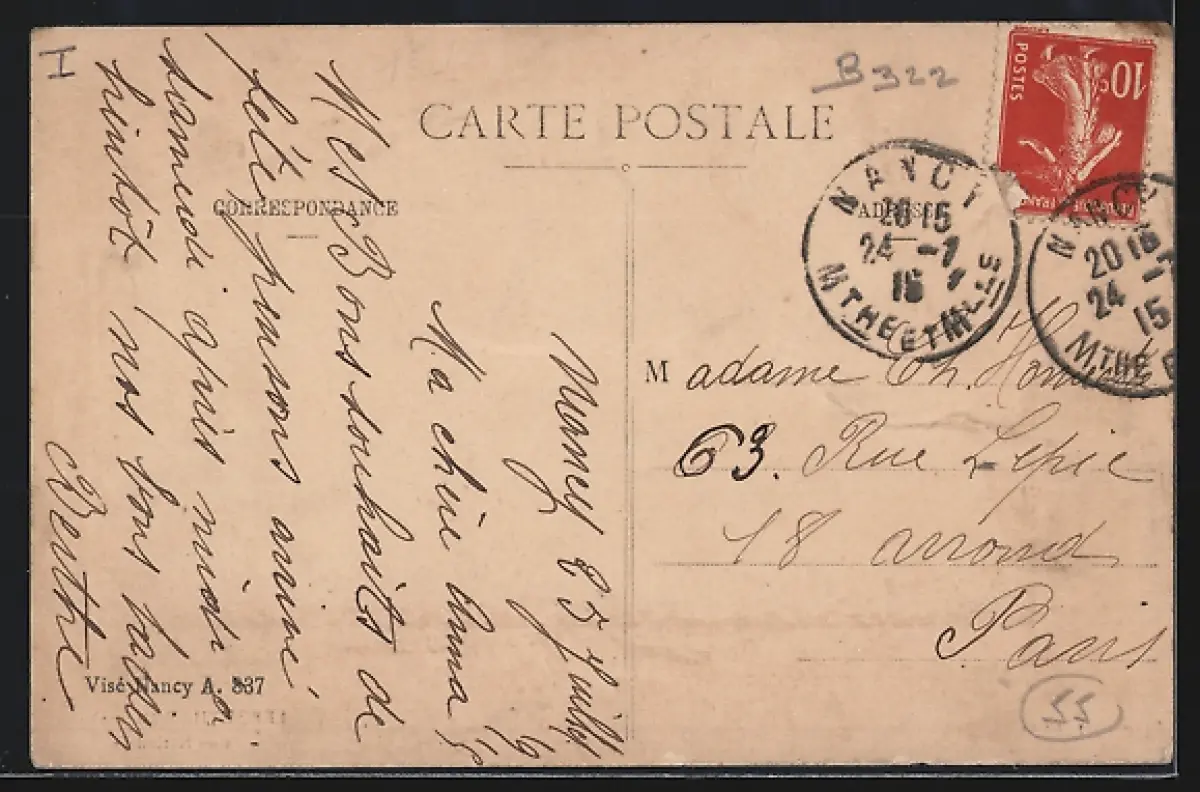 I
B322
CARTE POSTALE
CORRESPONDANCE
ADRESSE
10c
POSTES
NANCY
20 15
24 -7
15
MTHE ET MLLE
NANCY
20 15
24 -
15
MTHE E
Nancy 25 Juillet
15
Ma chère Anna
Mes Bons souhaits de
fête pensons arrivé
samedi après midi a
bientôt nos bons baisers
Berthe
M adame Ch.
63. Rue Lepic
18 arrond
Paris
Visé Nancy A. 337
55